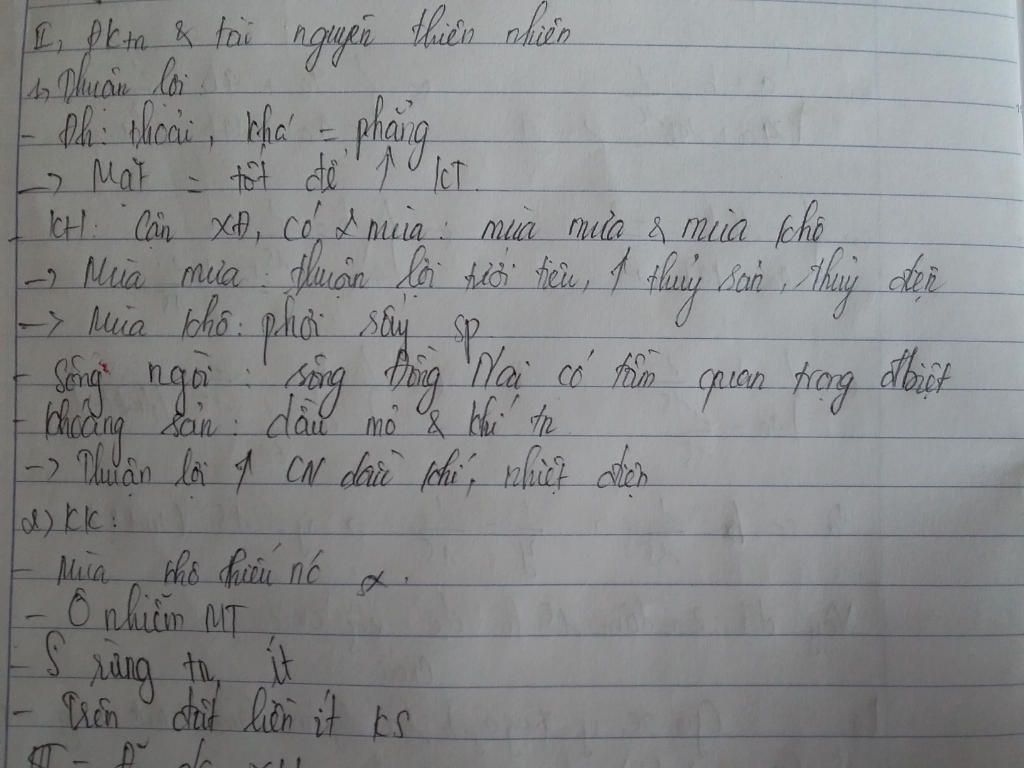 II, ĐKtn & tài nguyên thiên nhiên
1, Thuận lợi
- Đh: thoải, khá = phẳng
-> Mặt = tốt để ↑ KT.
- KH: Cận XĐ, có 2 mùa: mùa mưa & mùa khô
-> Mùa mưa: thuận lợi tưới tiêu, ↑ thuỷ sản, thuỷ điện
-> Mùa khô: phơi sấy sp
- Sông ngòi: sông Đồng Nai có tầm quan trọng đbiệt
- khoáng sản: dầu mỏ & khí tn
-> Thuận lợi ↑ CN dầu khí, nhiệt điện
2) KK:
- Mùa khô thiếu nc
- Ô nhiễm MT
- S rừng tn ít
- Trên đất liền ít KS